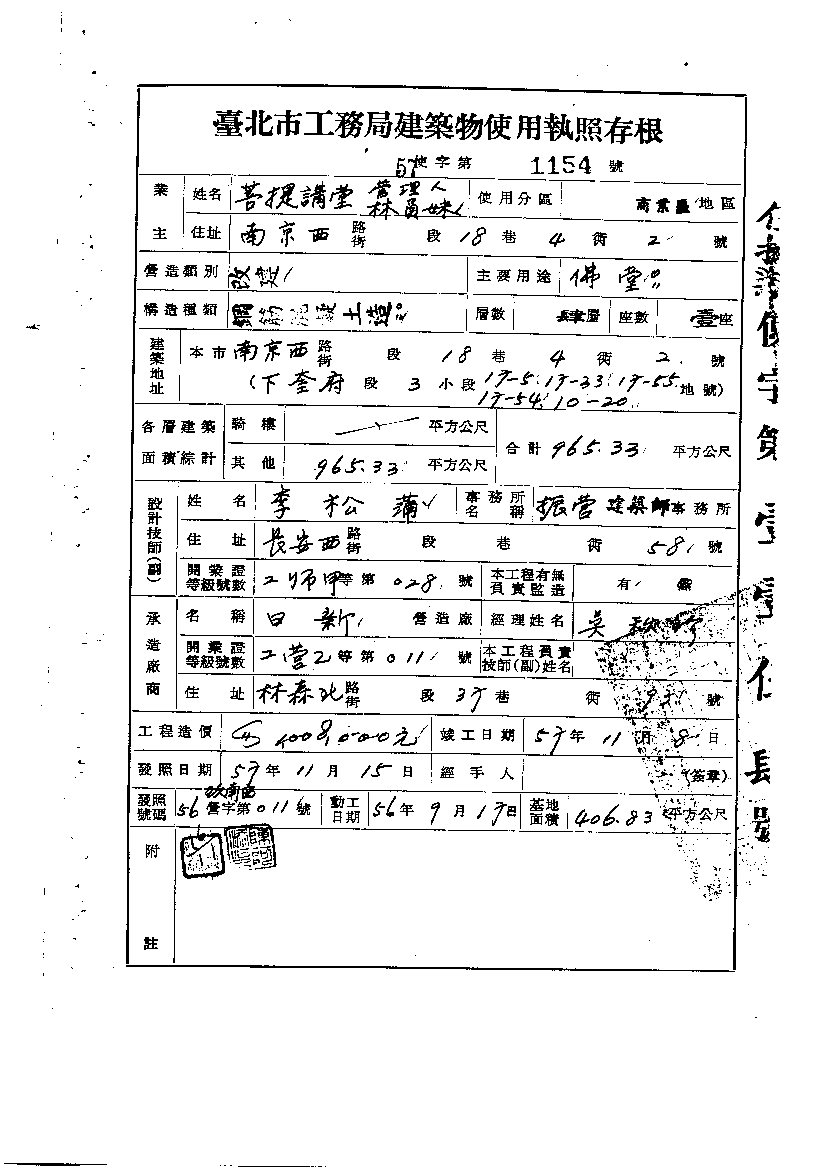 臺北市工務局建築物使用執照存根
57使字第 1154 號
業主 姓名 菩提講堂 管理人 林員妹 使用分區 商業區 地區
住址 南京西 路街 段 18 巷 4 衖 2 號
營造類別 改建 主要用途 佛堂
構造種類 鋼筋混凝土造 層數 肆層 座數 壹座
建築地址 本市南京西 路街 段 18 巷 4 衖 2 號
(下奎府 段 3 小段 17-5.17-33.17-55 地號)
17-54.10-20
各層建築面積綜計 騎樓 平方公尺 合計 965.33 平方公尺
其他 965.33 平方公尺
設計技師(副) 姓名 李松蒲 事務所名稱 振營建築師事務所
住址 長安西 路街 段 巷 衖 58 號
開業證等級號數 工師甲等第 028 號 本工程有無負責監造 有
承造廠商 名稱 日新 營造廠 經理姓名 吳
開業證等級號數 工營乙等第 011 號 本工程負責技師(副)姓名
住址 林森北 路街 段 37 巷 衖 號
工程造價 400,000元 竣工日期 57年 11月 8日
發照日期 57年 11月 15日 經手人 (簽章)
發照號碼 56 營字第 011 號 動工日期 56年 9月 17日 基地面積 406.83 平方公尺
附註